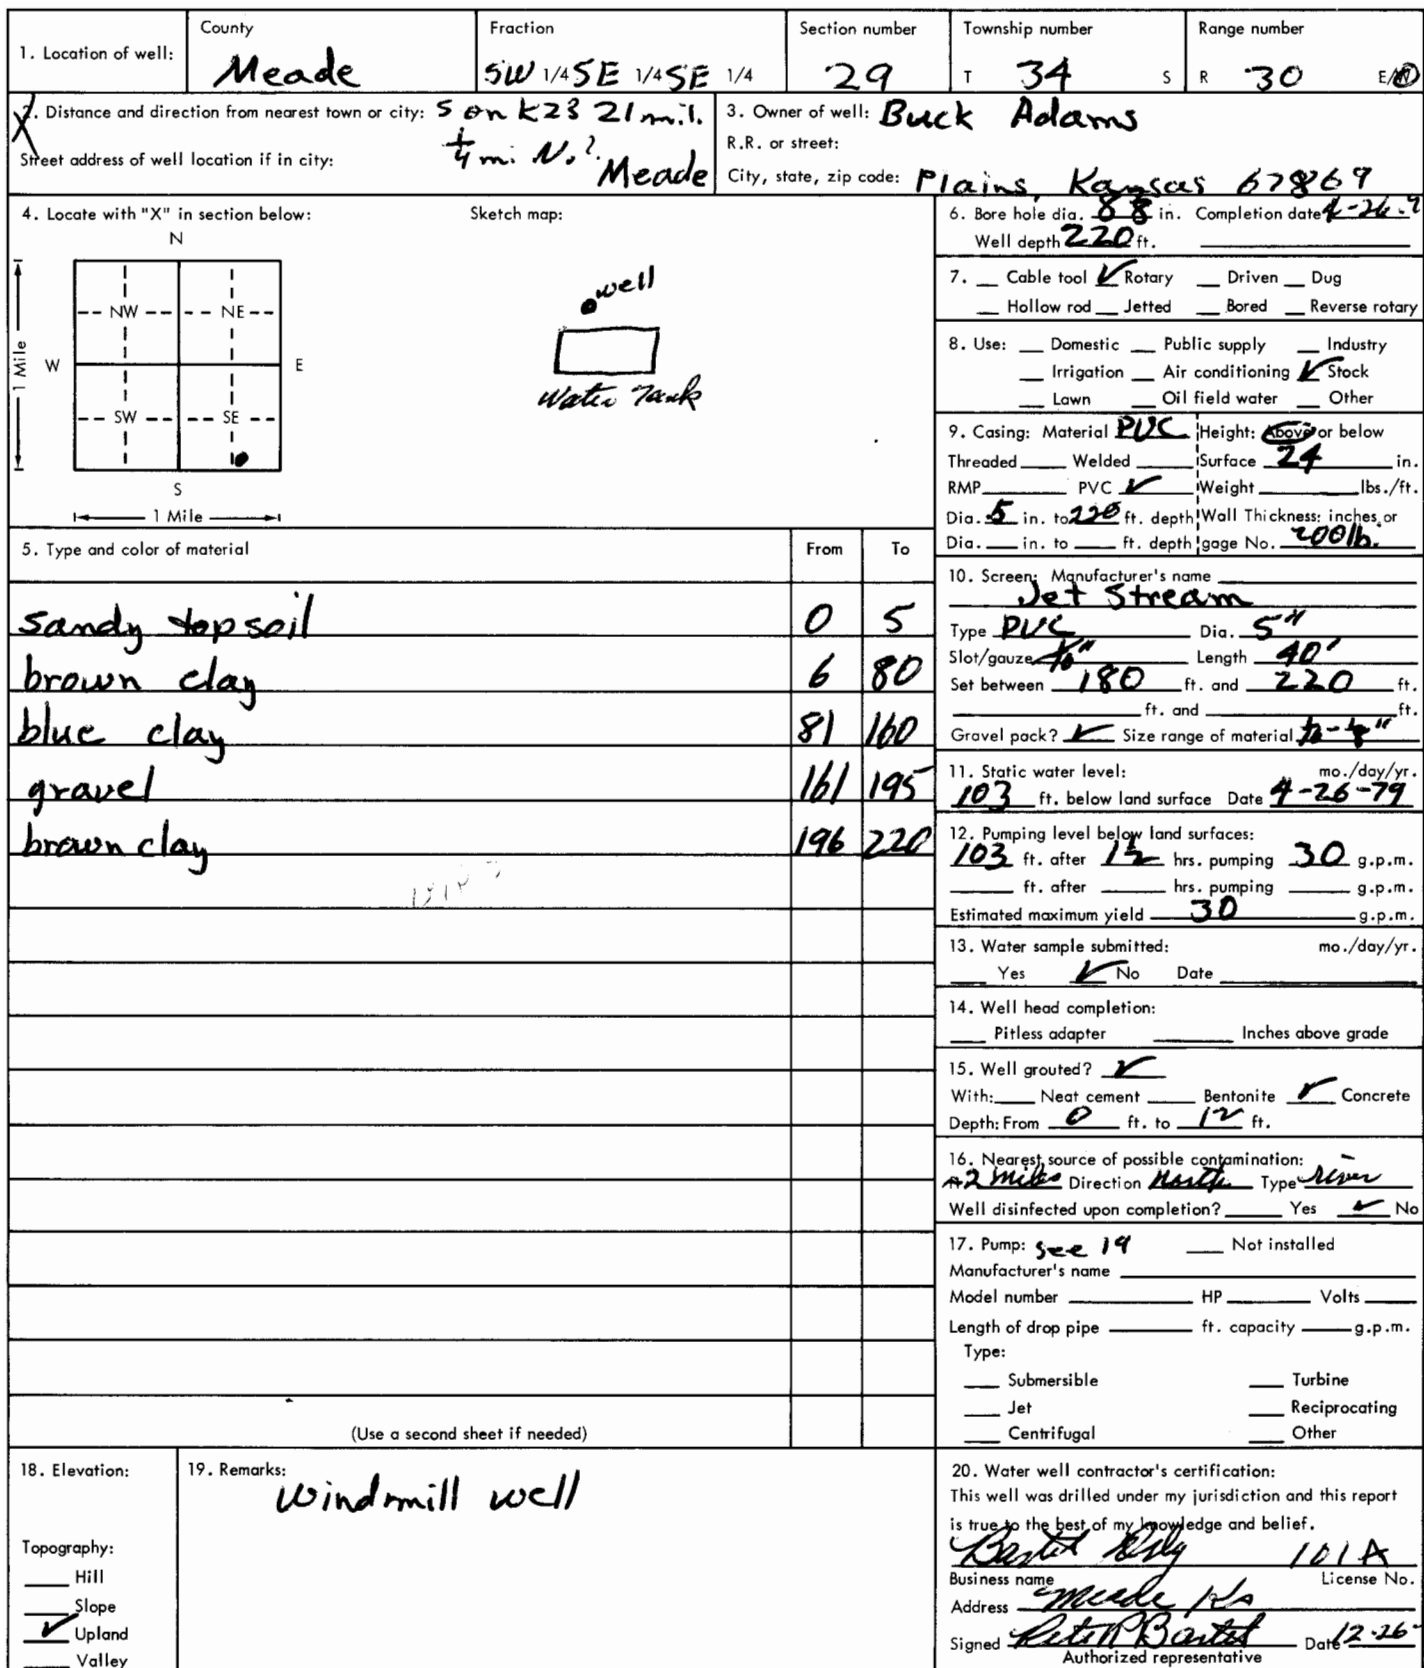 1. Location of well: County Meade Fraction SW 1/4 SE 1/4 SE 1/4 Section number 29 Township number T 34 S Range number R 30 E/W
2. Distance and direction from nearest town or city: S on K23 21 mil.
1/4 mi. N.
Street address of well location if in city: Meade
3. Owner of well: Buck Adams
R.R. or street:
City, state, zip code: Plains, Kansas 67869
4. Locate with "X" in section below:
N
NW NE
W E
SW SE
S
1 Mile
1 Mile
Sketch map:
well
Water Tank
5. Type and color of material From To
sandy topsoil 0 5
brown clay 6 80
blue clay 81 160
gravel 161 195
brown clay 196 220
(Use a second sheet if needed)
6. Bore hole dia. in. Completion date 4-26-7
Well depth 220 ft.
7. Cable tool ✓ Rotary Driven Dug
Hollow rod Jetted Bored Reverse rotary
8. Use: Domestic Public supply Industry
Irrigation Air conditioning ✓ Stock
Lawn Oil field water Other
9. Casing: Material PVC Height: Above or below
Threaded Welded Surface 24 in.
RMP PVC ✓ Weight lbs./ft.
Dia. 5 in. to 220 ft. depth Wall Thickness: inches or
Dia. in. to ft. depth gage No. 200 lb.
10. Screen: Manufacturer's name
Jet Stream
Type PVC Dia. 5"
Slot/gauze Length 40'
Set between 180 ft. and 220 ft.
ft. and ft.
Gravel pack? ✓ Size range of material
11. Static water level: mo./day/yr.
103 ft. below land surface Date 4-26-79
12. Pumping level below land surfaces:
103 ft. after 1½ hrs. pumping 30 g.p.m.
ft. after hrs. pumping g.p.m.
Estimated maximum yield 30 g.p.m.
13. Water sample submitted: mo./day/yr.
Yes ✓ No Date
14. Well head completion:
Pitless adapter Inches above grade
15. Well grouted? ✓
With: Neat cement Bentonite ✓ Concrete
Depth: From 0 ft. to 12 ft.
16. Nearest source of possible contamination:
2 miles Direction North Type river
Well disinfected upon completion? Yes ✓ No
17. Pump: see 19 Not installed
Manufacturer's name
Model number HP Volts
Length of drop pipe ft. capacity g.p.m.
Type:
Submersible Turbine
Jet Reciprocating
Centrifugal Other
18. Elevation:
Topography:
Hill
Slope
✓ Upland
Valley
19. Remarks:
windmill well
20. Water well contractor's certification:
This well was drilled under my jurisdiction and this report
is true to the best of my knowledge and belief.
Bartel Drlg 101A
Business name License No.
Address Meade Ks
Signed Pete R Bartel Date 12-26-
Authorized representative